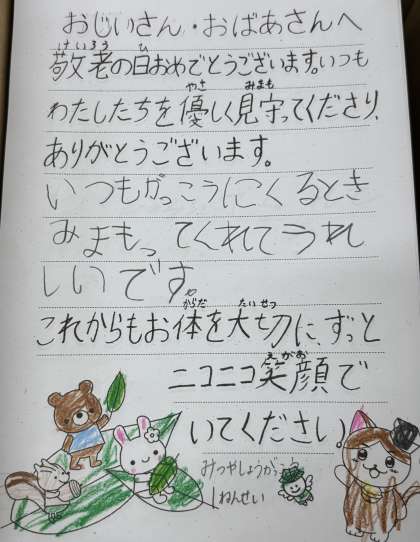 おじいさん・おばあさんへ
けいろう ひ
敬老の日おめでとうございます。いつも
やさ みまも
わたしたちを優しく見守ってくださり、
ありがとうございます。
いつもがっこうにくるとき
みまもってくれてうれ
しいです。
からだ たいせつ
これからもお体を大切に、ずっと
えがお
ニコニコ笑顔で
いてください。
みつやしょうがっこう
1ねんせい